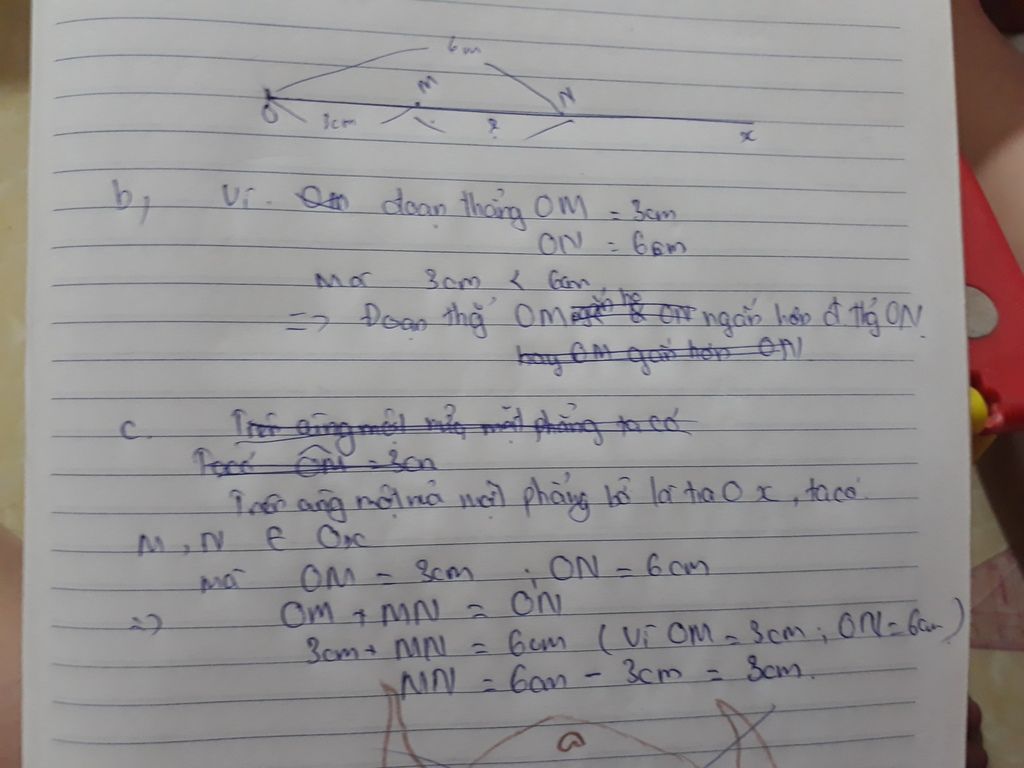 6cm
M
N
O
3cm
?
x
b, Vì đoạn thẳng OM = 3cm
ON = 6cm
Mà 3cm < 6cm
=> Đoạn thẳ OM ngắn hơn đ thg ON
hay OM gắn hơn ON
c. Trên cùng một nửa mặt phẳng ta có
Ta có OM = 3cm
Trên cùng một nửa mặt phẳng bờ là tia Ox, ta có
M, N ∈ Ox
mà OM = 3cm ; ON = 6cm
=> OM + MN = ON
3cm + MN = 6cm (Vì OM = 3cm ; ON = 6cm)
MN = 6cm - 3cm = 3cm.
a